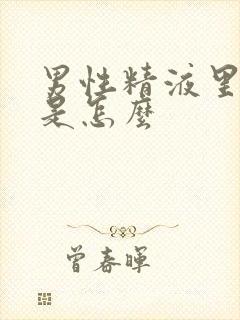 男性精液里
是怎麼
曾春暉